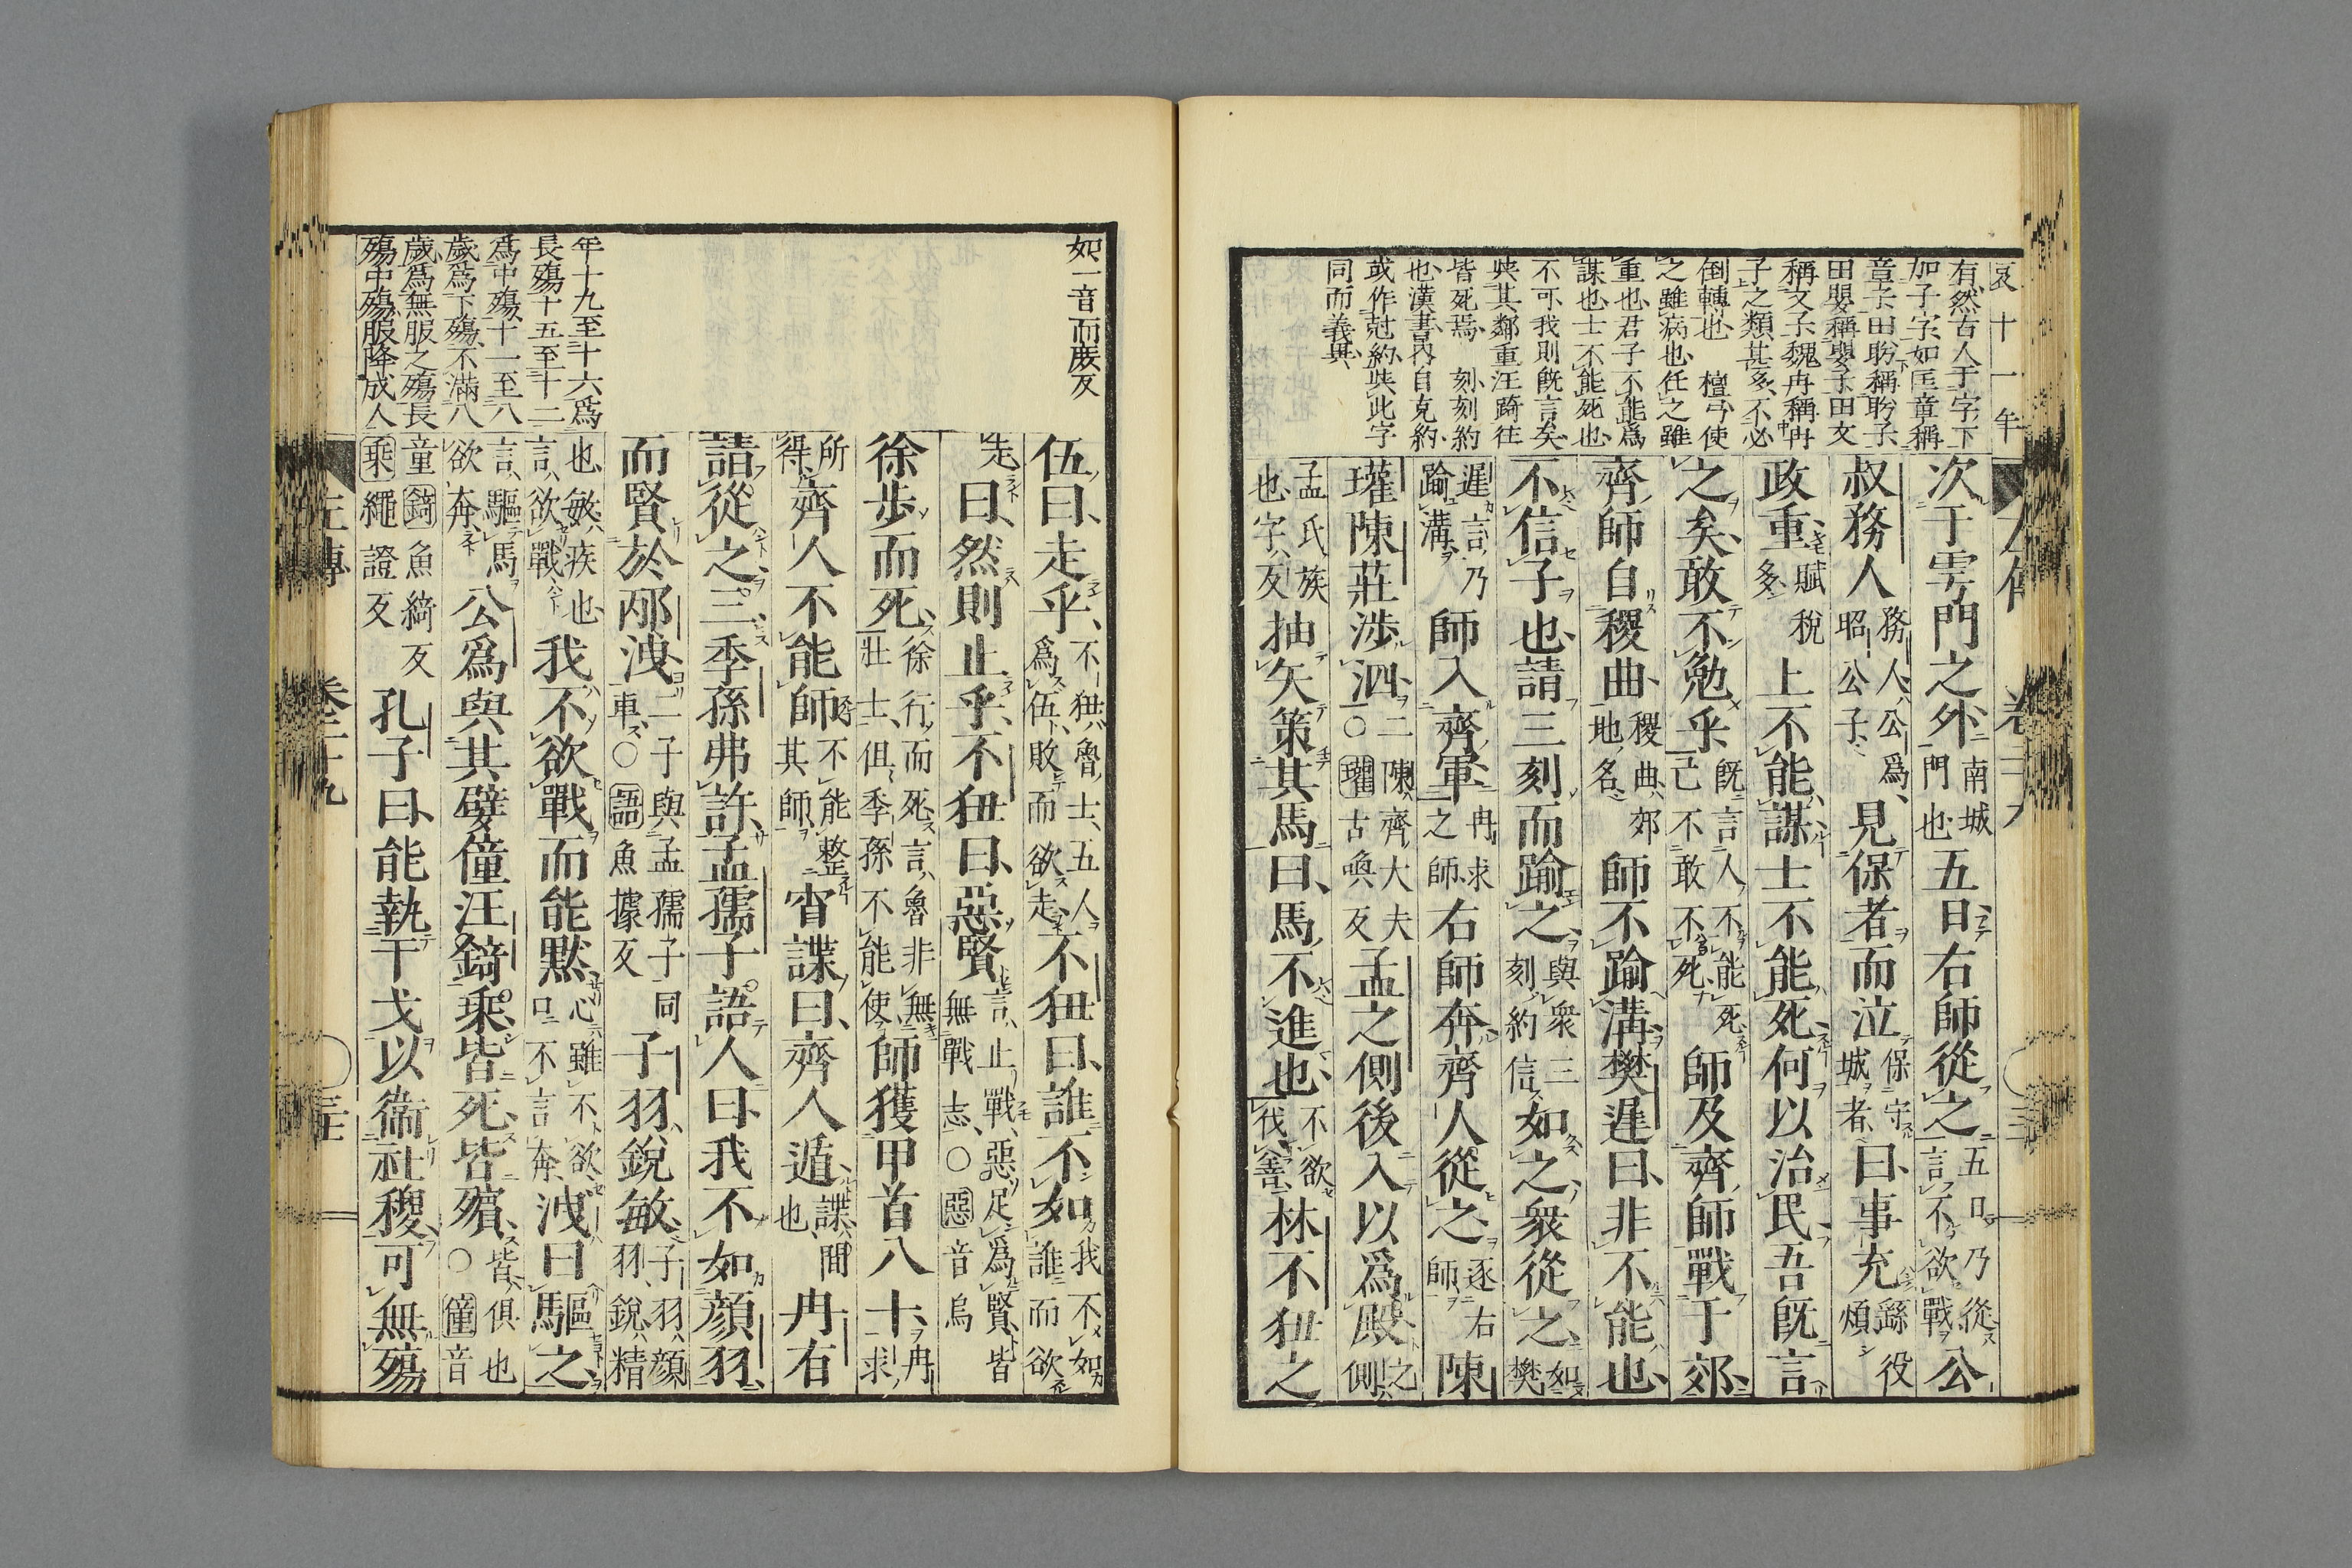 哀十一年
有然古人于字下
加子字如匡章稱
章子田盼稱盼子
田嬰稱嬰子田文
稱文子魏冉稱冉
子之類甚多不必
倒轉也 檀弓使
之雖病也任之雖
重也君子不能爲
謀也士不能死也
不可我則既言矣
與其鄰重汪踦往
皆死焉 刻刻約
也漢書内自克約
或作尅約與此字
同而義異
次于雩門之外南城門也五日右師從之五日乃從言不欲戰公
叔務人務人公爲昭公子見保者而泣保守城者曰事充繇役煩
政重賦稅多上不能謀士不能死何以治民吾既言
之矣敢不勉乎既言人不能死己不敢不死師及齊師戰于郊
齊師自稷曲稷曲郊地名師不踰溝樊遲曰非不能也
不信子也請三刻而踰之與衆三刻約信如之衆從之如樊
遲言乃踰溝師入齊軍冉求之師右師奔齊人從之逐右師陳
瓘陳莊涉泗二陳齊大夫○瓘古喚反孟之側後入以爲殿之側
孟氏族也字反抽矢策其馬曰馬不進也不欲伐善林不狃之
如一音而庶反
年十九至十六爲
長殤十五至十二
爲中殤十一至八
歲爲下殤不滿八
歲爲無服之殤長
殤中殤服降成人
伍曰走乎不狃魯士五人爲伍敗而欲走不狃曰誰不如我不如誰而欲
走曰然則止乎不狃曰惡賢言止戰惡足爲賢皆無戰志○惡音烏
徐步而死徐行而死言魯非無壯士但季孫不能使師獲甲首八十冉求
所得齊人不能師不能整其師宵諜曰齊人遁諜間也冉有
請從之三季孫弗許孟孺子語人曰我不如顏羽
而賢於邴洩二子與孟孺子同車○語魚據反子羽銳敏子羽顏羽銳精
也敏疾也言欲戰我不欲戰而能默心雖不欲口不言奔洩曰驅之
言驅馬欲奔公爲與其嬖僮汪錡乘皆死皆殯皆俱也○僮音
童錡魚綺反乘繩證反孔子曰能執干戈以衛社稷可無殤
左傳 卷二十九